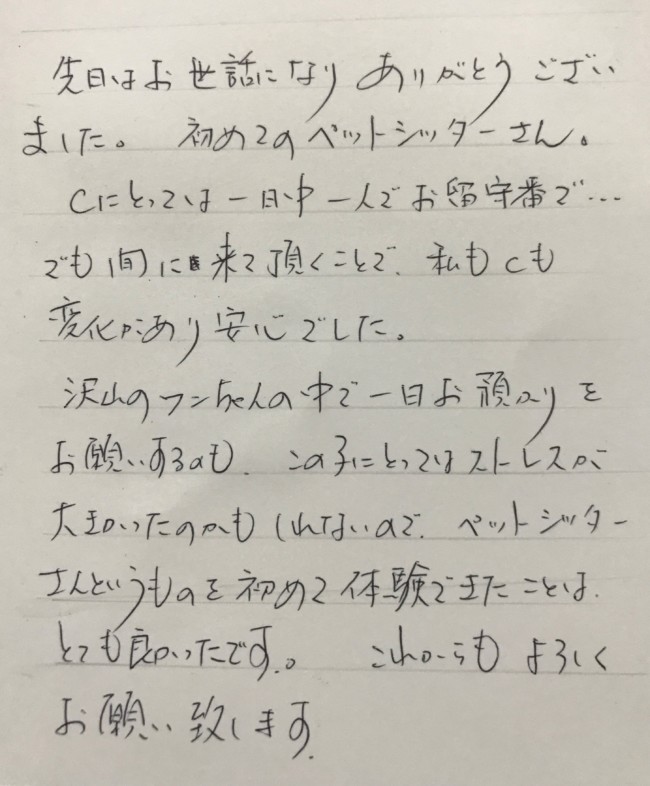 先日はお世話になりありがとうござい
ました。 初めてのペットシッターさん。
Cにとっては一日中一人でお留守番で…
でも間に来て頂くことで、私もCも
変化があり安心でした。
沢山のワンちゃんの中で一日お預かりを
お願いするのも、この子にとってはストレスが
大きかったのかもしれないので、ペットシッター
さんというものを初めて体験できたことは、
とても良かったです。 これからもよろしく
お願い致します。